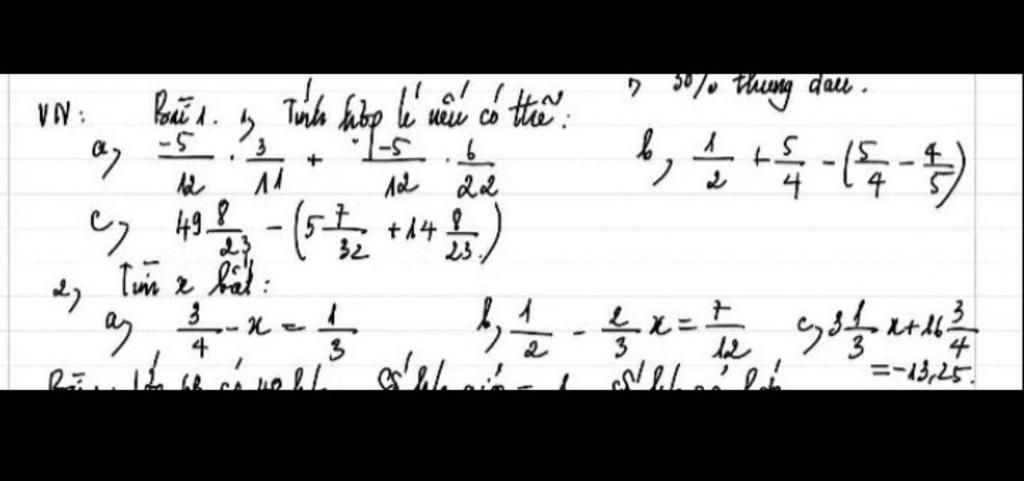 30% thùng dầu.
VN: Bài 1. 1, Tính hợp lí nếu có thể:
a, -5/12 . 3/11 + -5/12 . 6/22 b, 1/2 + 5/4 - (5/4 - 4/5)
c, 49 8/23 - (5 7/32 + 14 8/23)
2, Tìm x biết:
a, 3/4 - x = 1/3 b, 1/2 - 2/3 x = 7/12 c, 3 1/3 x + 16 3/4
= -13,25.